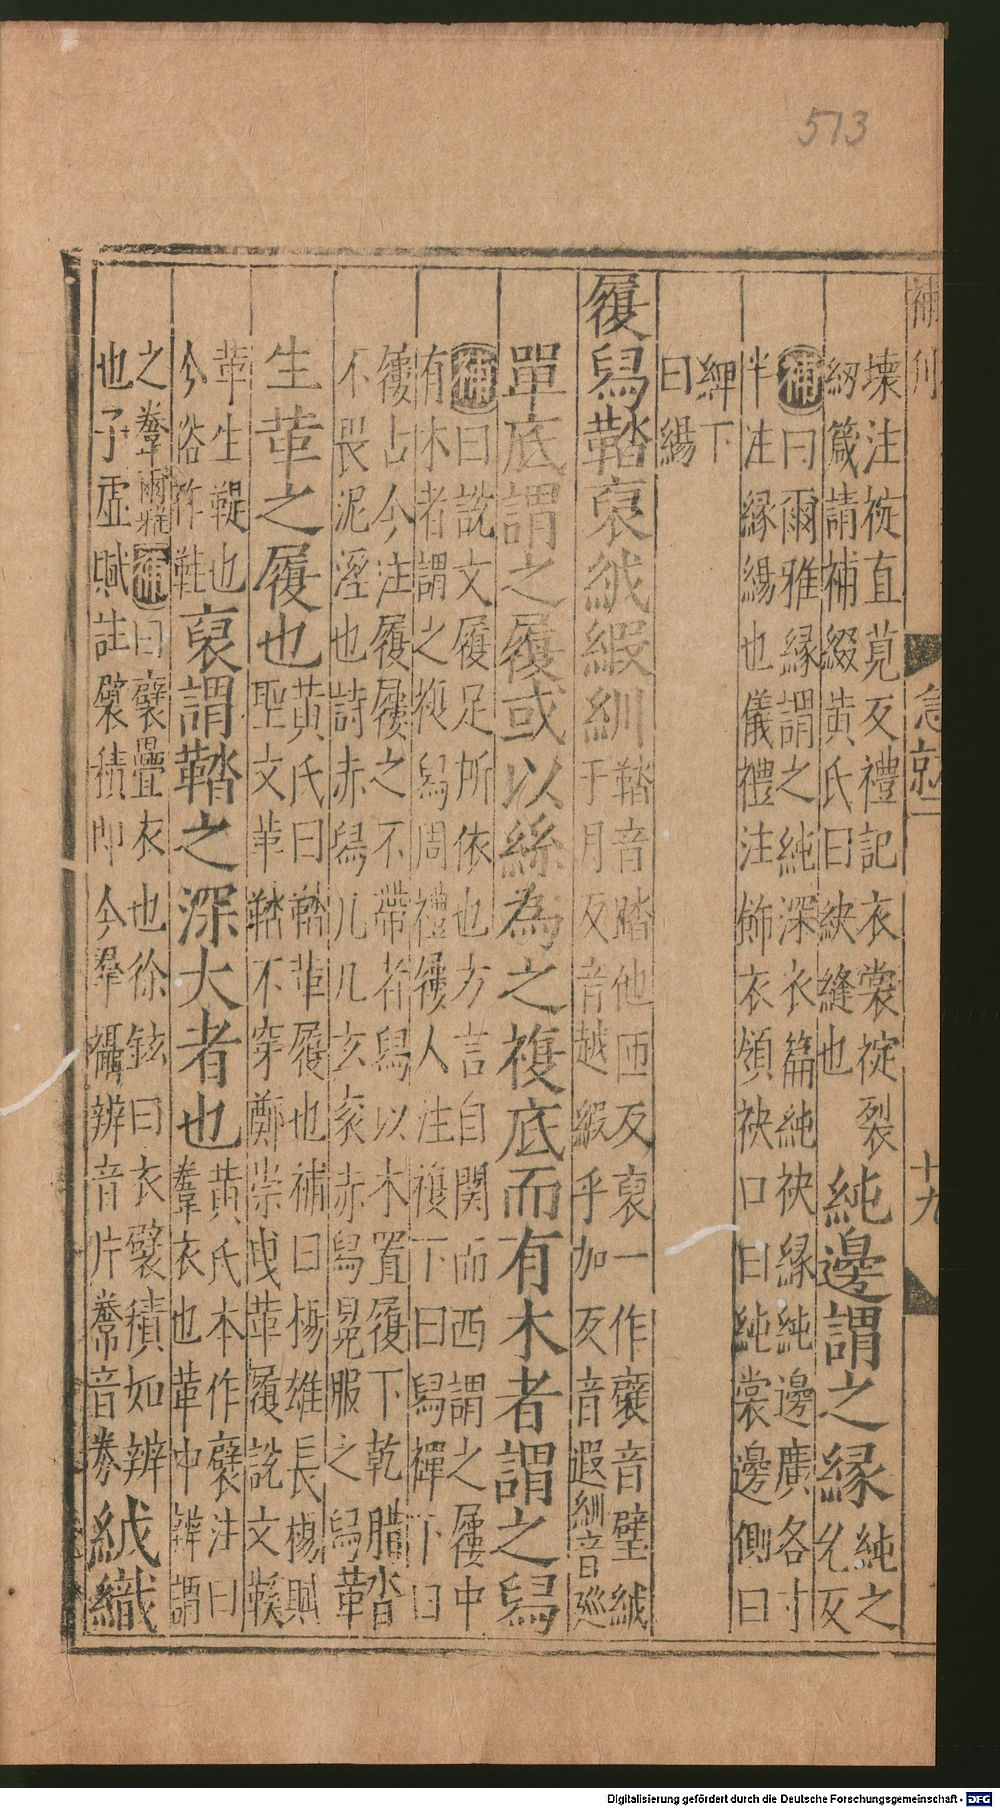 513
補刊
急就一
十九
壞注袳直莧反禮記衣裳袳裂
紉箴請補綴黃氏曰紩縫也
純邊謂之緣
純之
允反
補曰爾雅緣謂之純深衣篇純袂緣純邊廣各寸
半注緣緆也儀禮注飾衣領袂口曰純裳邊側曰
綼下
曰緆
履舄鞜裒絨緞紃
鞜音踏他匝反裒一作襞音璧絨
于月反音越緞乎加反音遐紃音巡
單底謂之履或以絲為之複底而有木者謂之舄
補曰說文履足所依也方言自關而西謂之屨中
有木者謂之複舄周禮屨人注複下曰舄襌下曰
屨古今注履屨之不帶者舄以木置履下乾腊
不畏泥溼也詩赤舄几几玄衮赤舄冕服之舄
鞜
革
生革之履也
黃氏曰鞜革履也補曰楊雄長楊賦
聖文革鞜不穿鄭崇曳革履說文鞵
革生鞮也
今俗作鞋
裒謂鞜之深大者也
黃氏本作襞注曰
韏衣也革中辨謂
之韏爾雅補曰襞疊衣也徐鉉曰衣襞積如辨
也子虛賦註襞積即今羣襵辨音片韏音豢
絨織
Digitalisierung gefördert durch die Deutsche Forschungsgemeinschaft - DFG